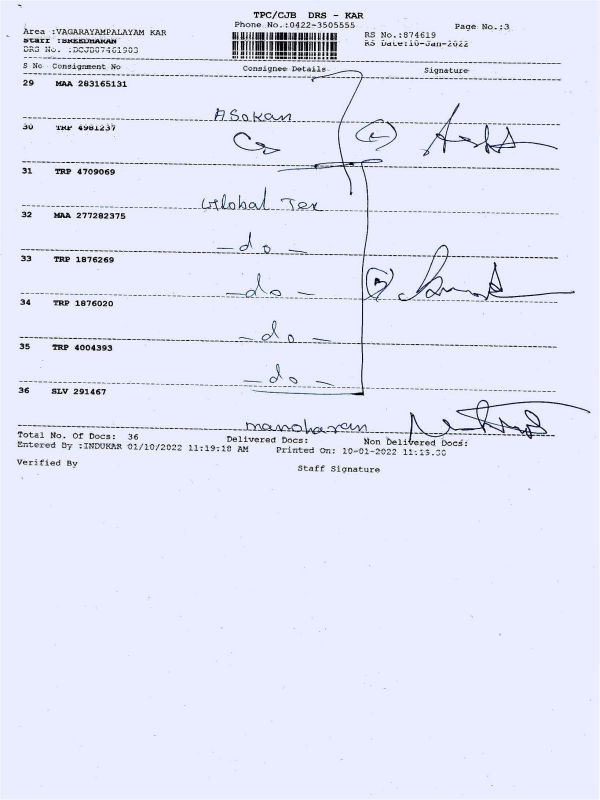 TPC/CJB DRS - KAR
Phone No.:0422-3505555 Page No.:3
Area :VAGARAYAMPALAYAM KAR RS No.:874619
Staff :SREEDHARAN RS Date:10-Jan-2022
DRS No. :DCJB87461903
S No Consignment No Consignee Details Signature
29 MAA 283165131
Asokan
30 TRP 4981237
31 TRP 4709069
Global Tex
32 MAA 277282375
- do -
33 TRP 1876269
- do -
34 TRP 1876020
- do -
35 TRP 4004393
- do -
36 SLV 291467
manoharan
Total No. Of Docs: 36 Delivered Docs: Non Delivered Docs:
Entered By :INDUKAR 01/10/2022 11:19:18 AM Printed On: 10-01-2022 11:19.38
Verified By Staff Signature